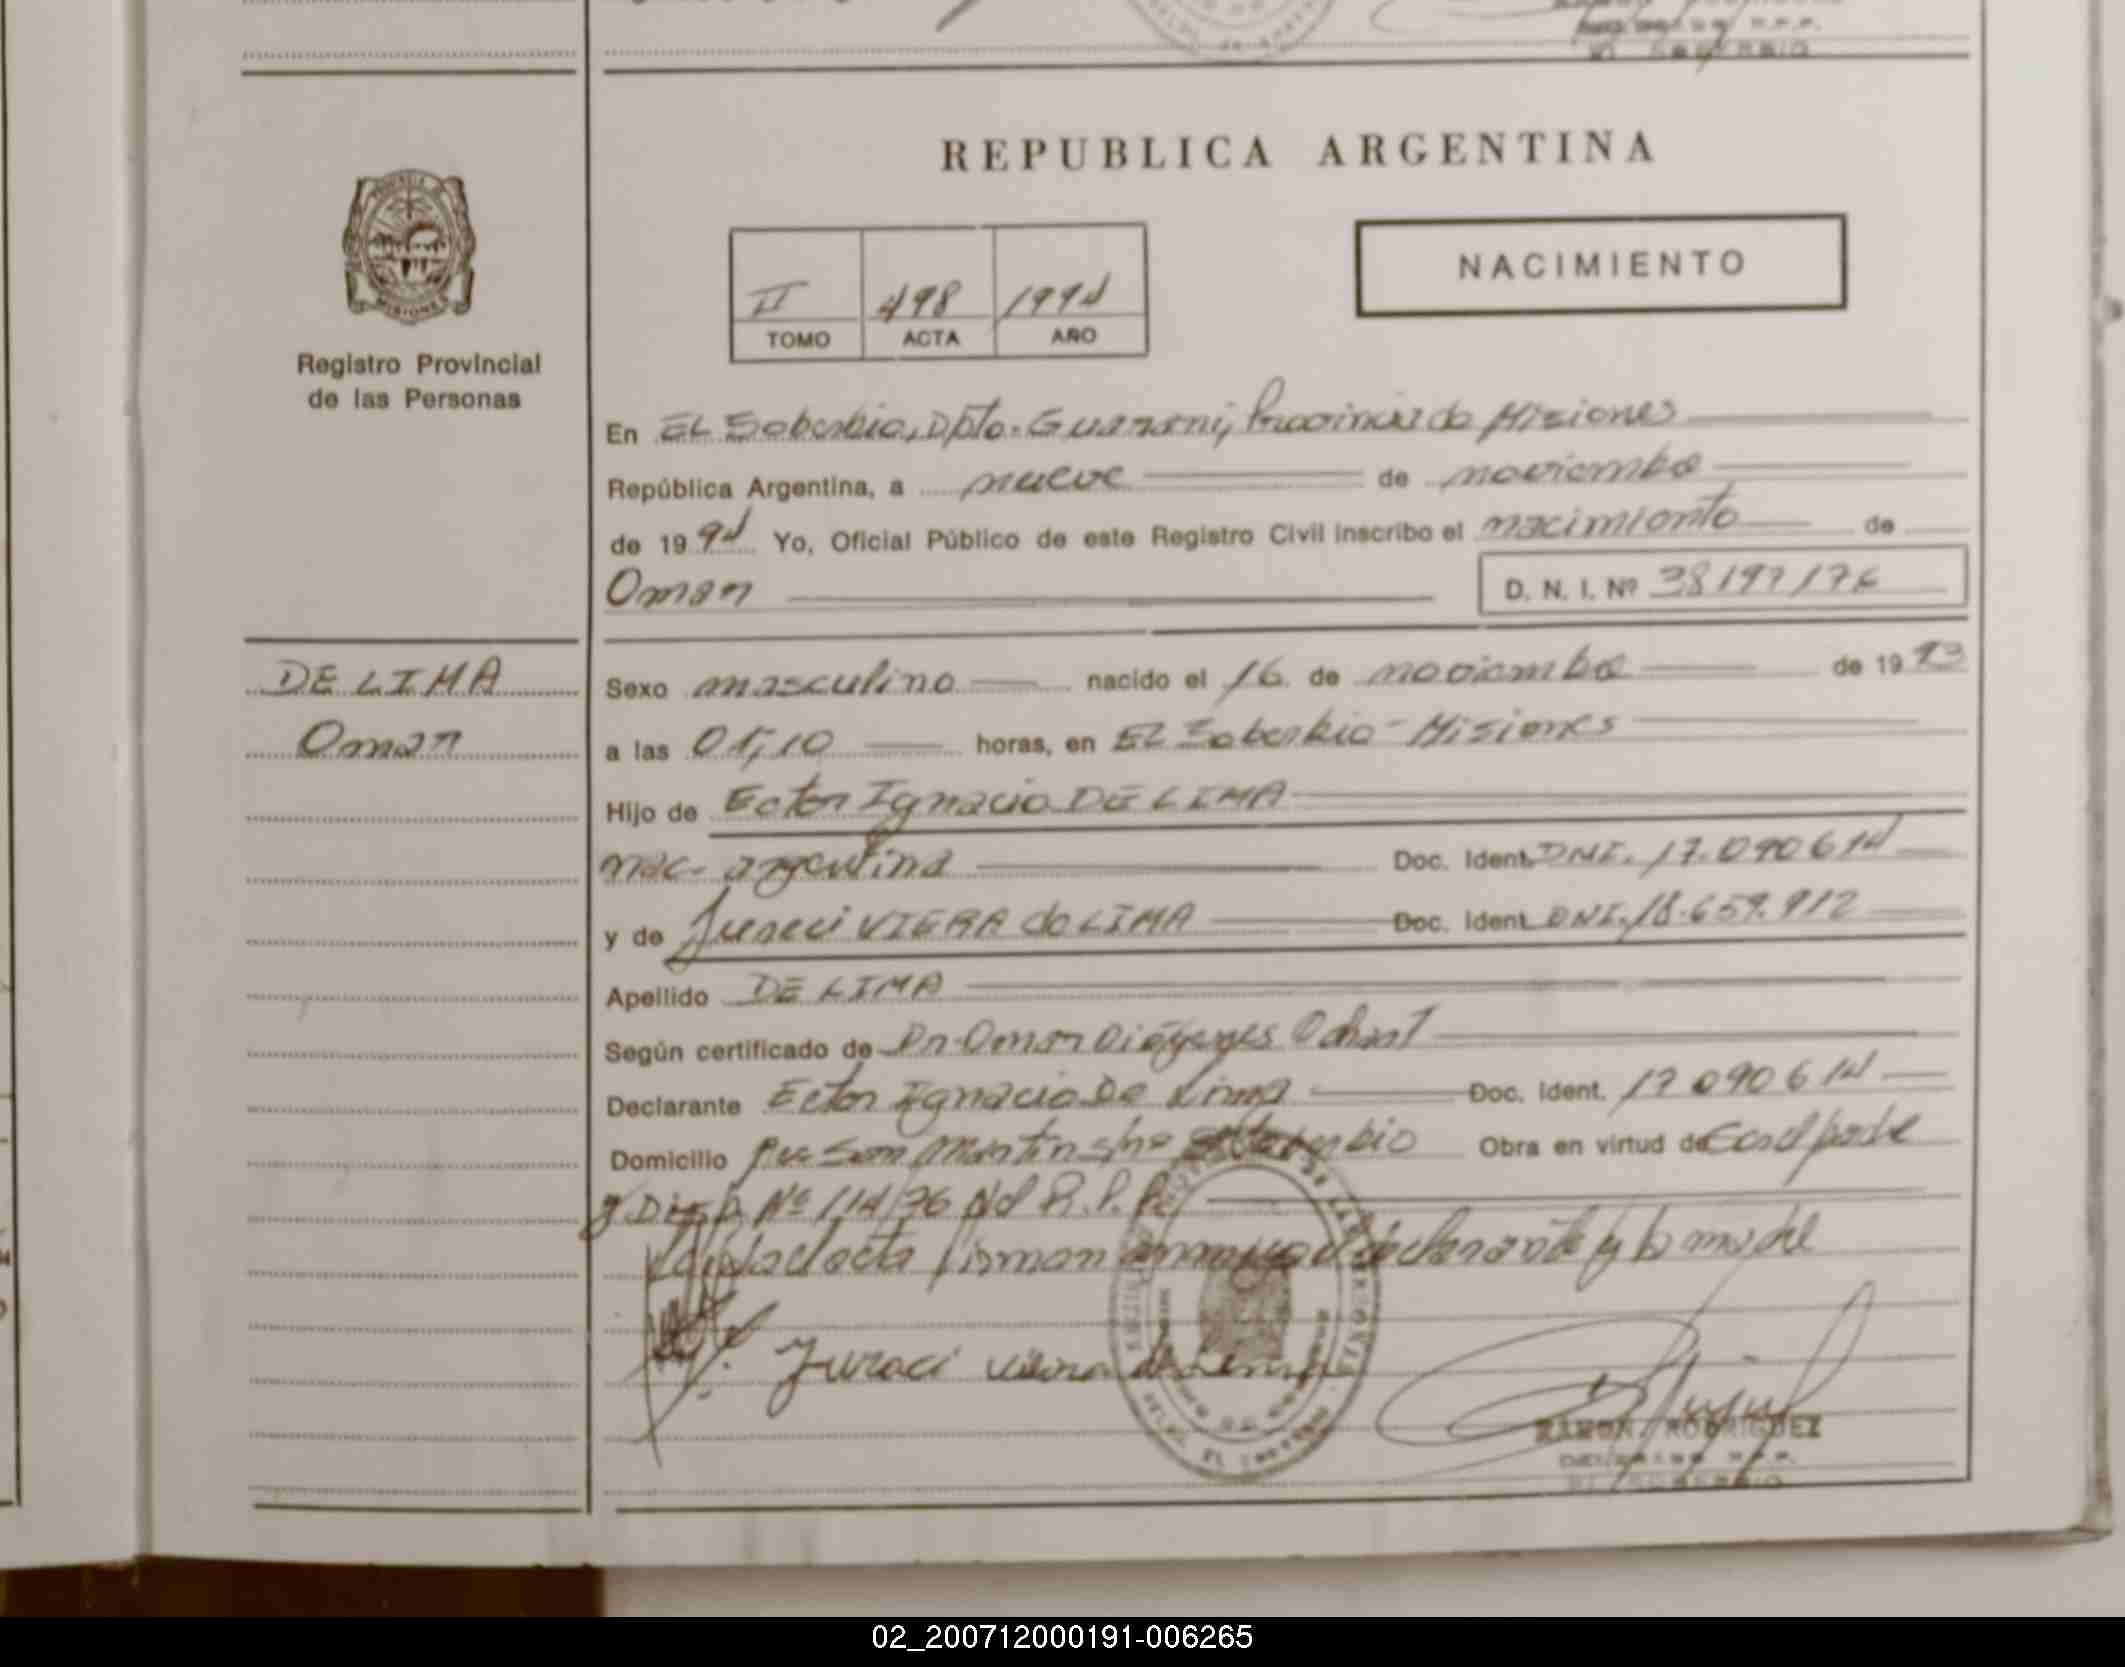 REPUBLICA ARGENTINA
NACIMIENTO
II 498 1994
TOMO ACTA AÑO
MISIONES
Registro Provincial
de las Personas
En EL Soberbio, Dpto. Guarani, Provincia de Misiones
República Argentina, a nueve de noviembre
de 1994 Yo, Oficial Público de este Registro Civil inscribo el nacimiento de
Omar D. N. I. Nº 38197176
DE LIMA
Omar
Sexo masculino nacido el 16 de noviembre de 1993
a las 01,10 horas, en El Soberbio - Misiones
Hijo de Ector Ignacio DE LIMA
nac. argentina Doc. Ident. DNI. 17.090614
y de Juraci VIERA de LIMA Doc. Ident. DNI. 18.659.912
Apellido DE LIMA
Según certificado de Dr. Omar Diógenes
Declarante Ector Ignacio De Lima Doc. Ident. 17090614
Domicilio San Martin s/nº El Soberbio Obra en virtud de
y Disp. Nº 114/76 del R.P.P.
Leida el acta firman el declarante y la madre
Juraci viera de Lima
RAMON RODRIGUEZ
DELEGADO R.P.P.
EL SOBERBIO
02_200712000191-006265